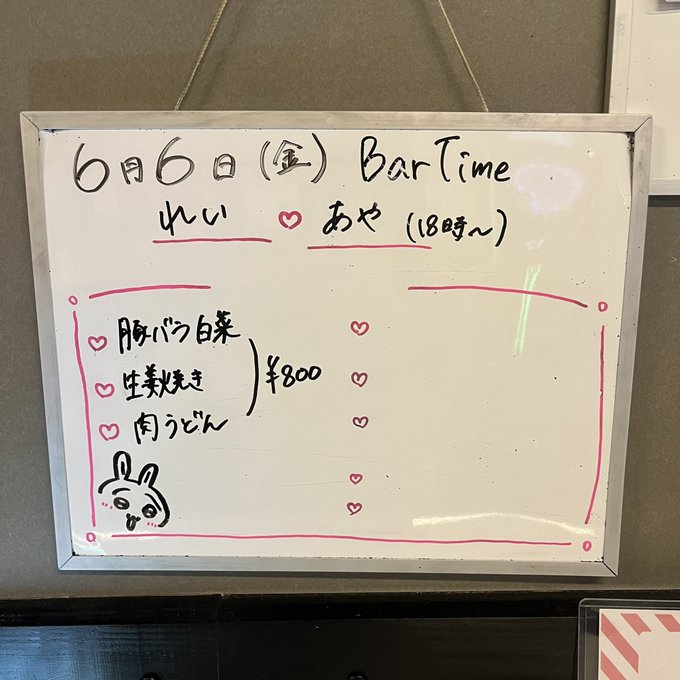 6月6日(金) Bar Time
れい ♡ あや (18時〜)
♡ 豚バラ白菜
♡ 生姜焼き
♡ 肉うどん
¥800